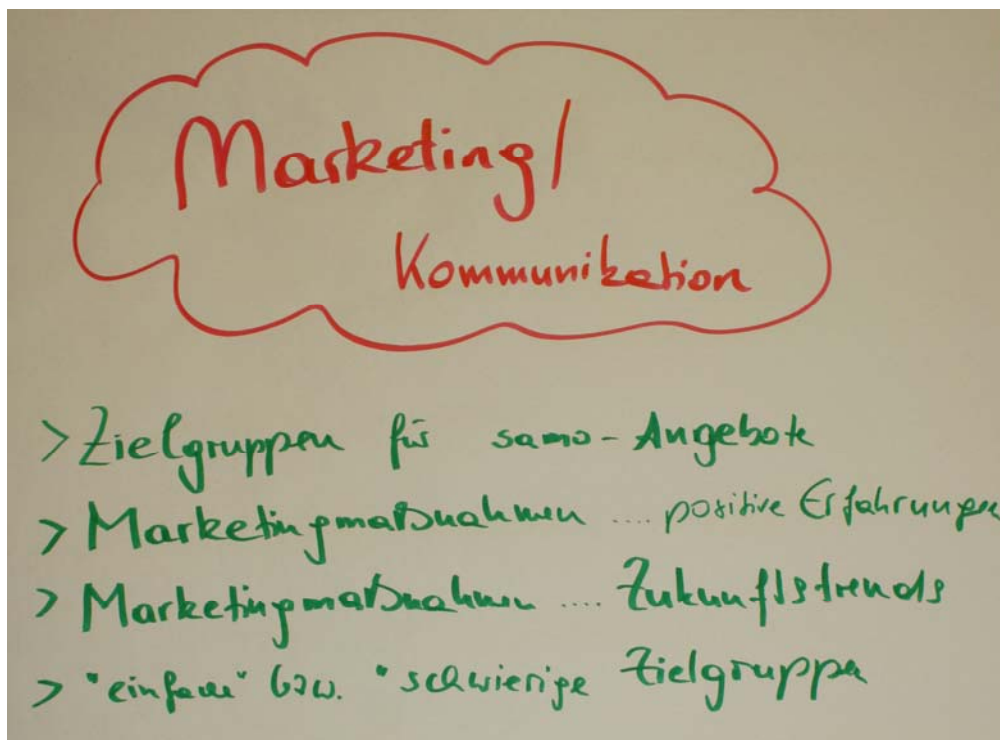 Marketing/
Kommunikation
> Zielgruppen für samo-Angebote
> Marketingmaßnahmen .... positive Erfahrungen
> Marketingmaßnahmen .... Zukunftstrends
> "einfache" bzw. "schwierige Zielgruppen